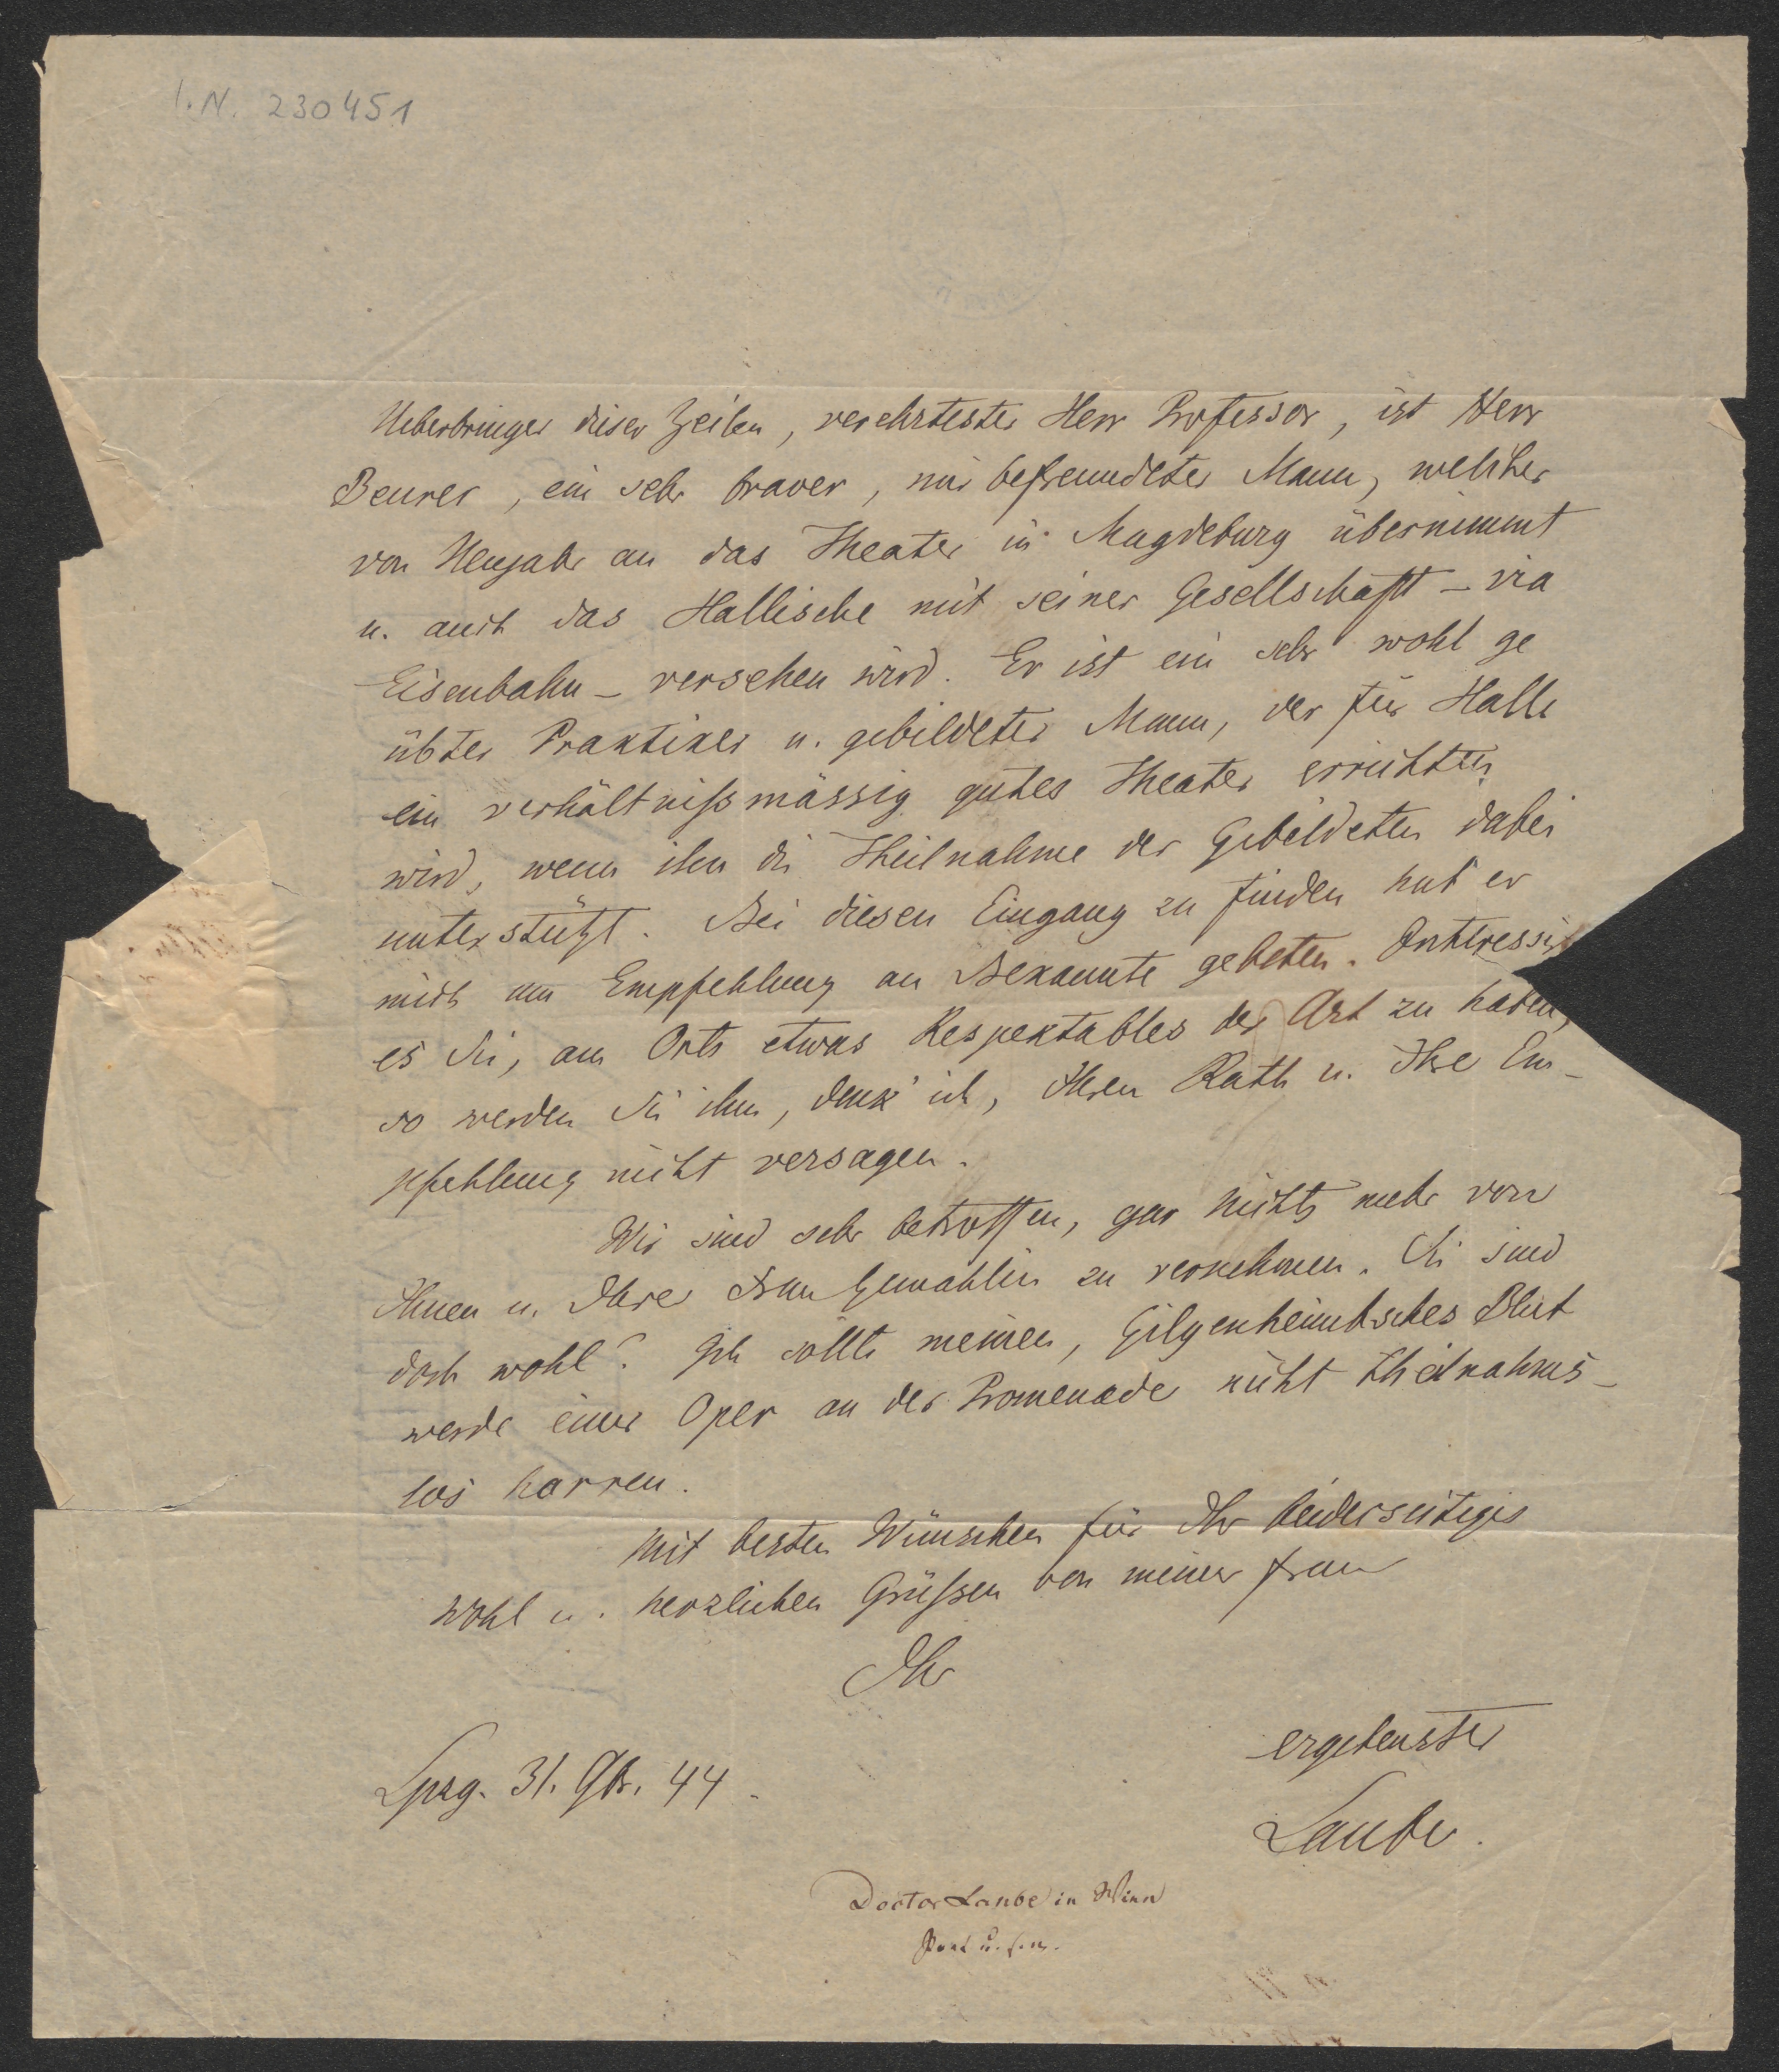 I.N. 230451
Ueberbringer dieser Zeilen, verehrtester Herr Professor, ist Herr
Beurer, ein sehr braver, mir befreundeter Mann, welcher
von Neujahr an das Theater in Magdeburg übernimmt
u. auch das Hallische mit seiner Gesellschaft – via
Eisenbahn – versehen wird. Er ist ein sehr wohl ge
übter Praktiker u. gebildeter Mann, der für Halle
ein verhältnißmässig gutes Theater errichten
wird, wenn ihn die Theilnahme der Gebildeten dabei
unterstützt. Bei diesen Eingang zu finden hat er
mich um Empfehlung an Bekannte gebeten. Interessirt
es Sie, am Orte etwas Respektables der Art zu haben,
so werden Sie ihm, denk' ich, Ihren Rath u. Ihre Em-
pfehlung nicht versagen.
Wir sind sehr betroffen, gar nichts mehr von
Ihnen u. Ihrer Frau Gemahlin zu vernehmen. Sie sind
doch wohl? Ich sollte meinen, Gilgenheimbsches Blut
werde einer Oper an der Promenade nicht theilnahms-
los harren.
Mit besten Wünschen für Ihr beiderseitiges
Wohl u. herzlichen Grüßen von meiner Frau
Ihr
ergebenster
Lpzg. 31. 44.
Laube.
Doctor Laube in Wien